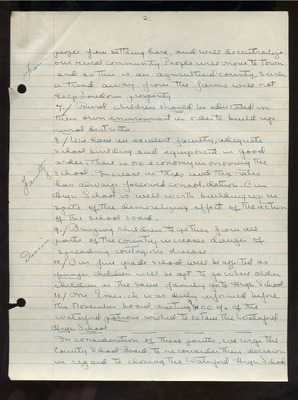 2.
people from settling here, and will decentralize
our rural community. People will move to town
and as this is an agricultural county, such
a trend away from the farms will not
keep Loudoun prosperity.
7./ Rural children should be educated in
their own environment in order to build up
rural districts.
8./ We have an excellent faculty, adequate
school building and equipment in good
order. There is no economy in moving the
school. Increase in taxes and tax rates
has always followed consolidation. Our
High School is well worth building up in
spite of the demoralizing effect of the action
of the school board.
9./ Bringing children together from all
parts of the County increases danger of
spreading contagious disease.
10./ Our fine grade school will be affected as
younger children will be apt to go where older
children in the same family go to High School.
11./ Our
the November board meeting
Waterford patrons wished to retain the Waterford
High School
In consideration of these points, we urge the
County School Board to reconsider their decision
in regard to closing the Waterford High School
Faculty